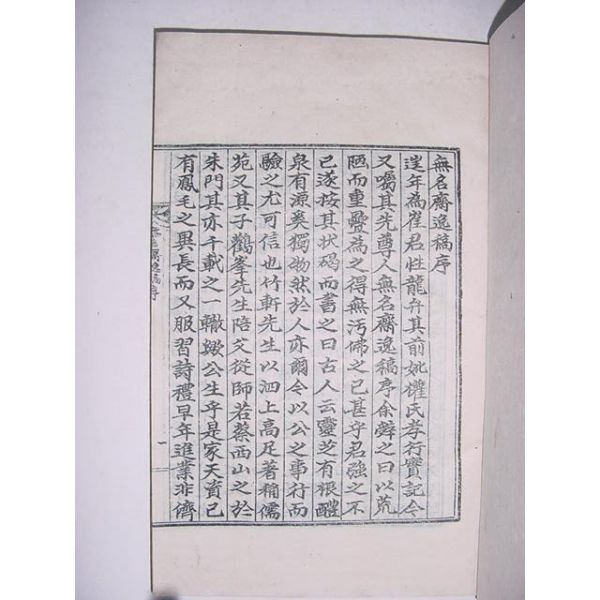 無名齋逸稿序
徃年為崔君性龍弁其前妣權氏孝行實記今
又囑其先尊人無名齋逸稿序余辭之曰以荒
陋而重疊為之得無汚佛之已甚乎君強之不
已遂按其狀碣而書之曰古人云靈芝有根醴
泉有源奚獨物然於人亦爾今以公之事行而
驗之尤可信也竹軒先生以泗上高足著稱儒
苑又其子鸛峯先生陪父從師若蔡西山之於
朱門其亦千載之一轍歟公生乎是家天資已
有鳳毛之異長而又服習詩禮早年進業非儕
一